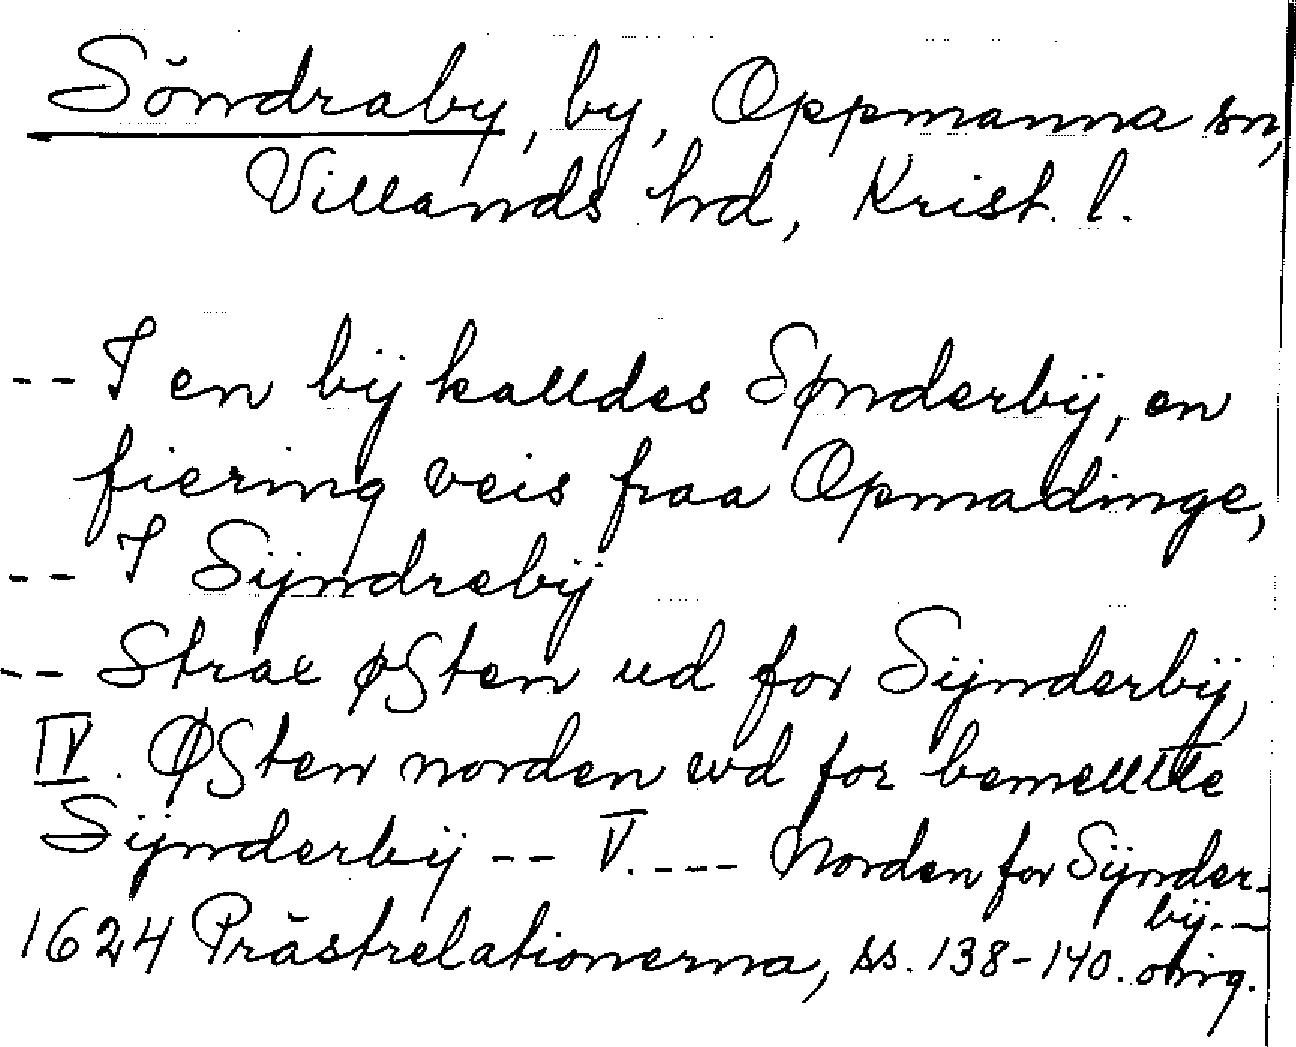 Söndraby, by, Oppmanna sn,
Villands hd, Krist. l.
-- I en bÿ kalldes Sønderbÿ, en
fiering veis fraa Opmadinge,
-- I Sÿndrebÿ
-- Strax østen ud for Sÿnderbÿ,
IV. Østen norden wd for bemellte
Sÿnderbÿ -- V. --- Norden for Sÿnder-
bÿ.--
1624 Prästrelationerna, ss. 138-140. orig.